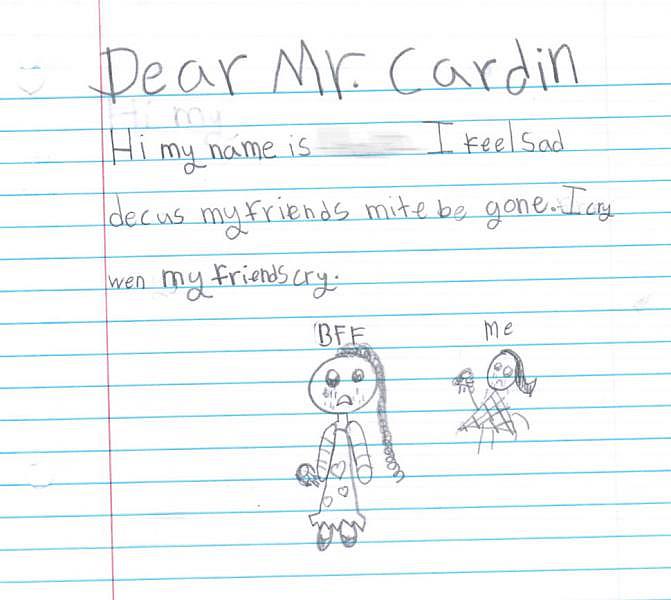 Dear Mr. Cardin
Hi my
Hi my name is I feel sad
decus my friends mite be gone. I cry
wen my friends cry.
BFF
Me